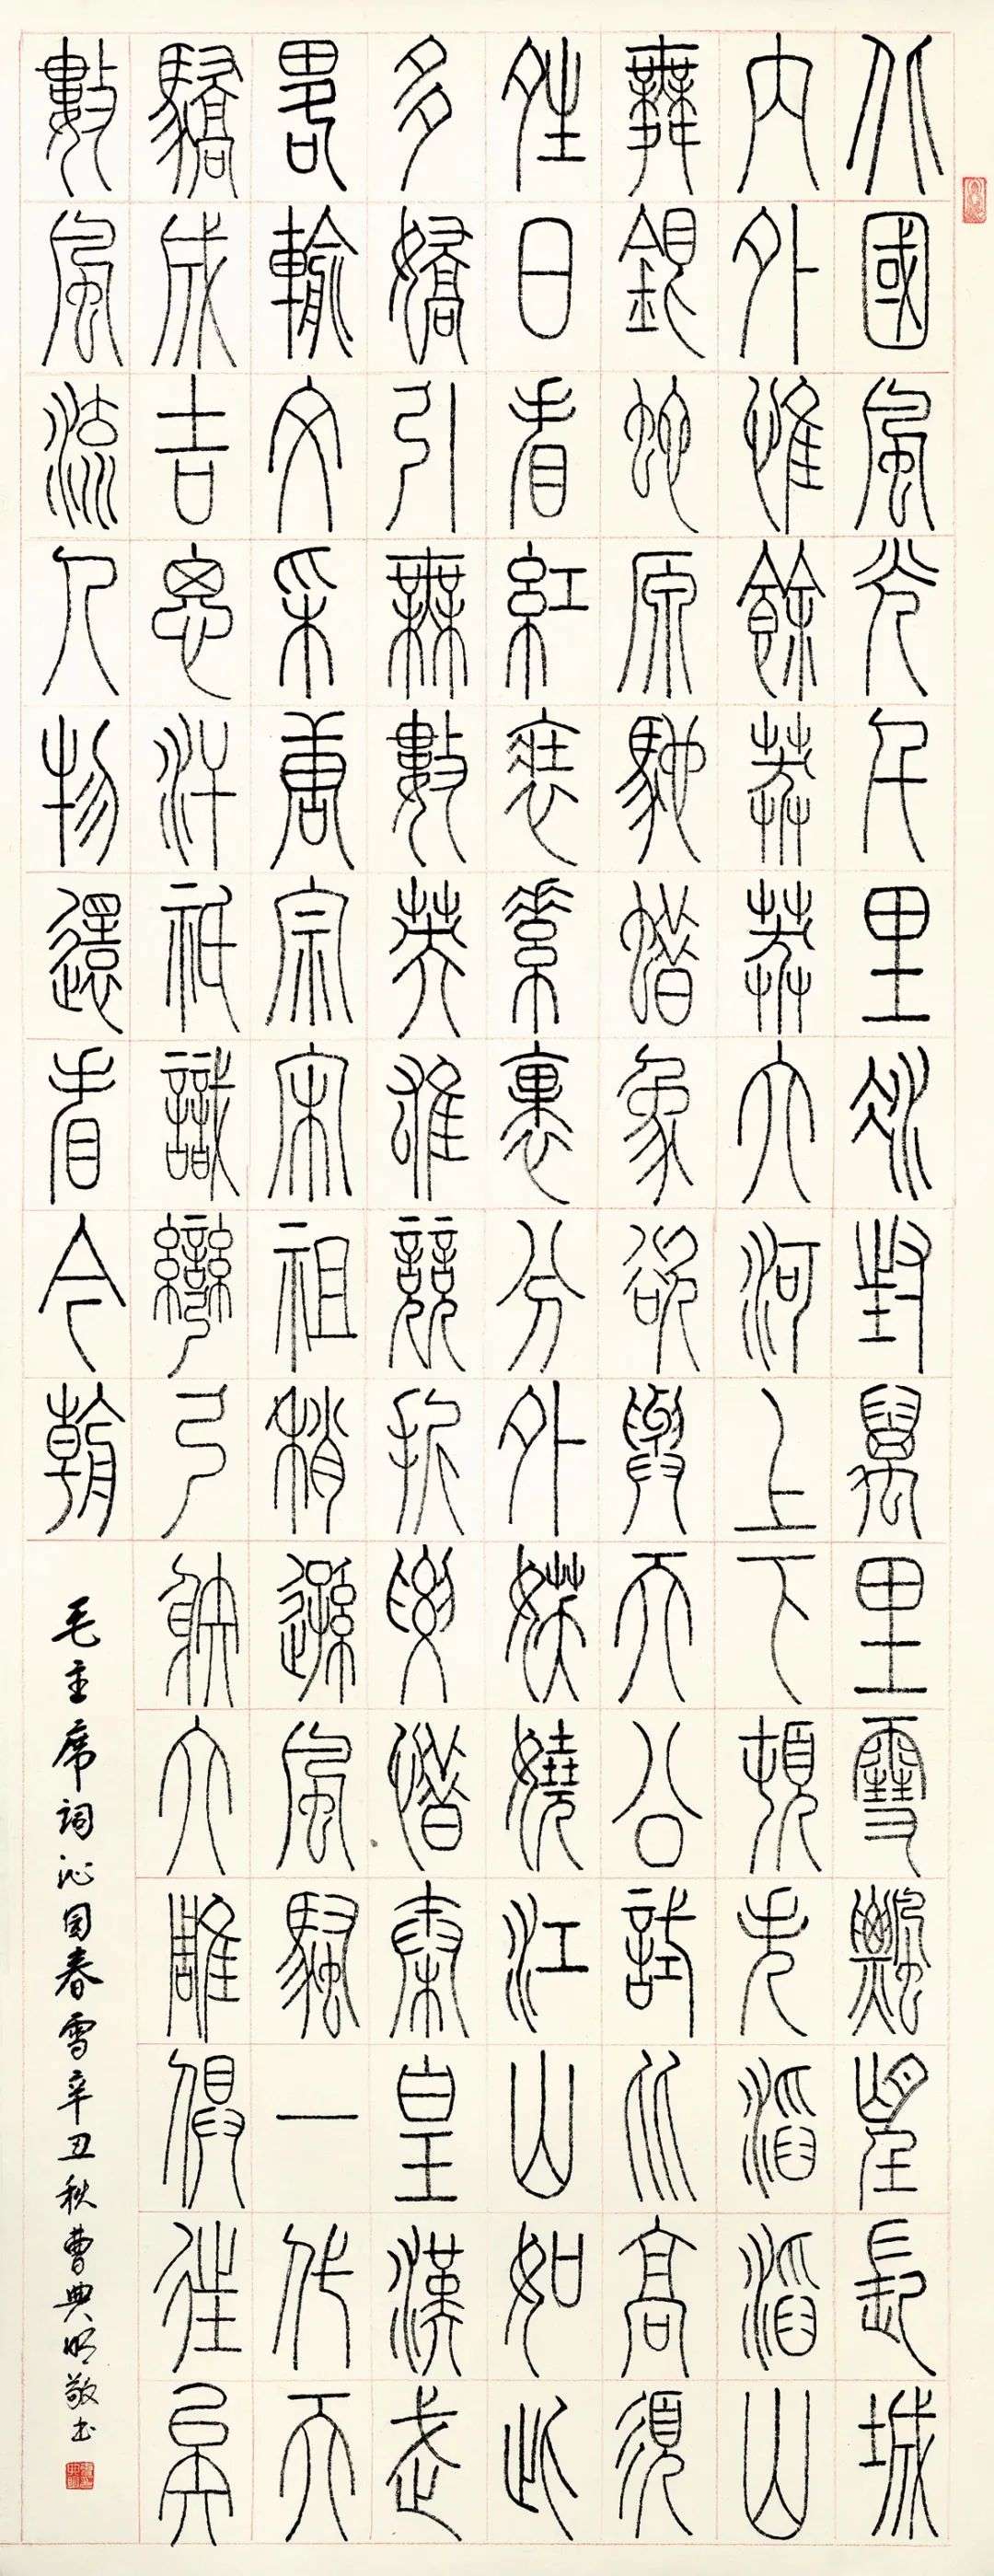 北國風光千里冰封萬里雪飄望長城
內外惟餘莽莽大河上下頓失滔滔山
舞銀蛇原馳蜡象欲與天公試比高須
晴日看紅裝素裹分外妖嬈江山如此
多嬌引無數英雄競折腰惜秦皇漢武
略輸文采唐宗宋祖稍遜風騷一代天
驕成吉思汗祇識彎弓射大雕俱往矣
數風流人物還看今朝
毛主席词沁园春雪辛丑秋曹典明敬书